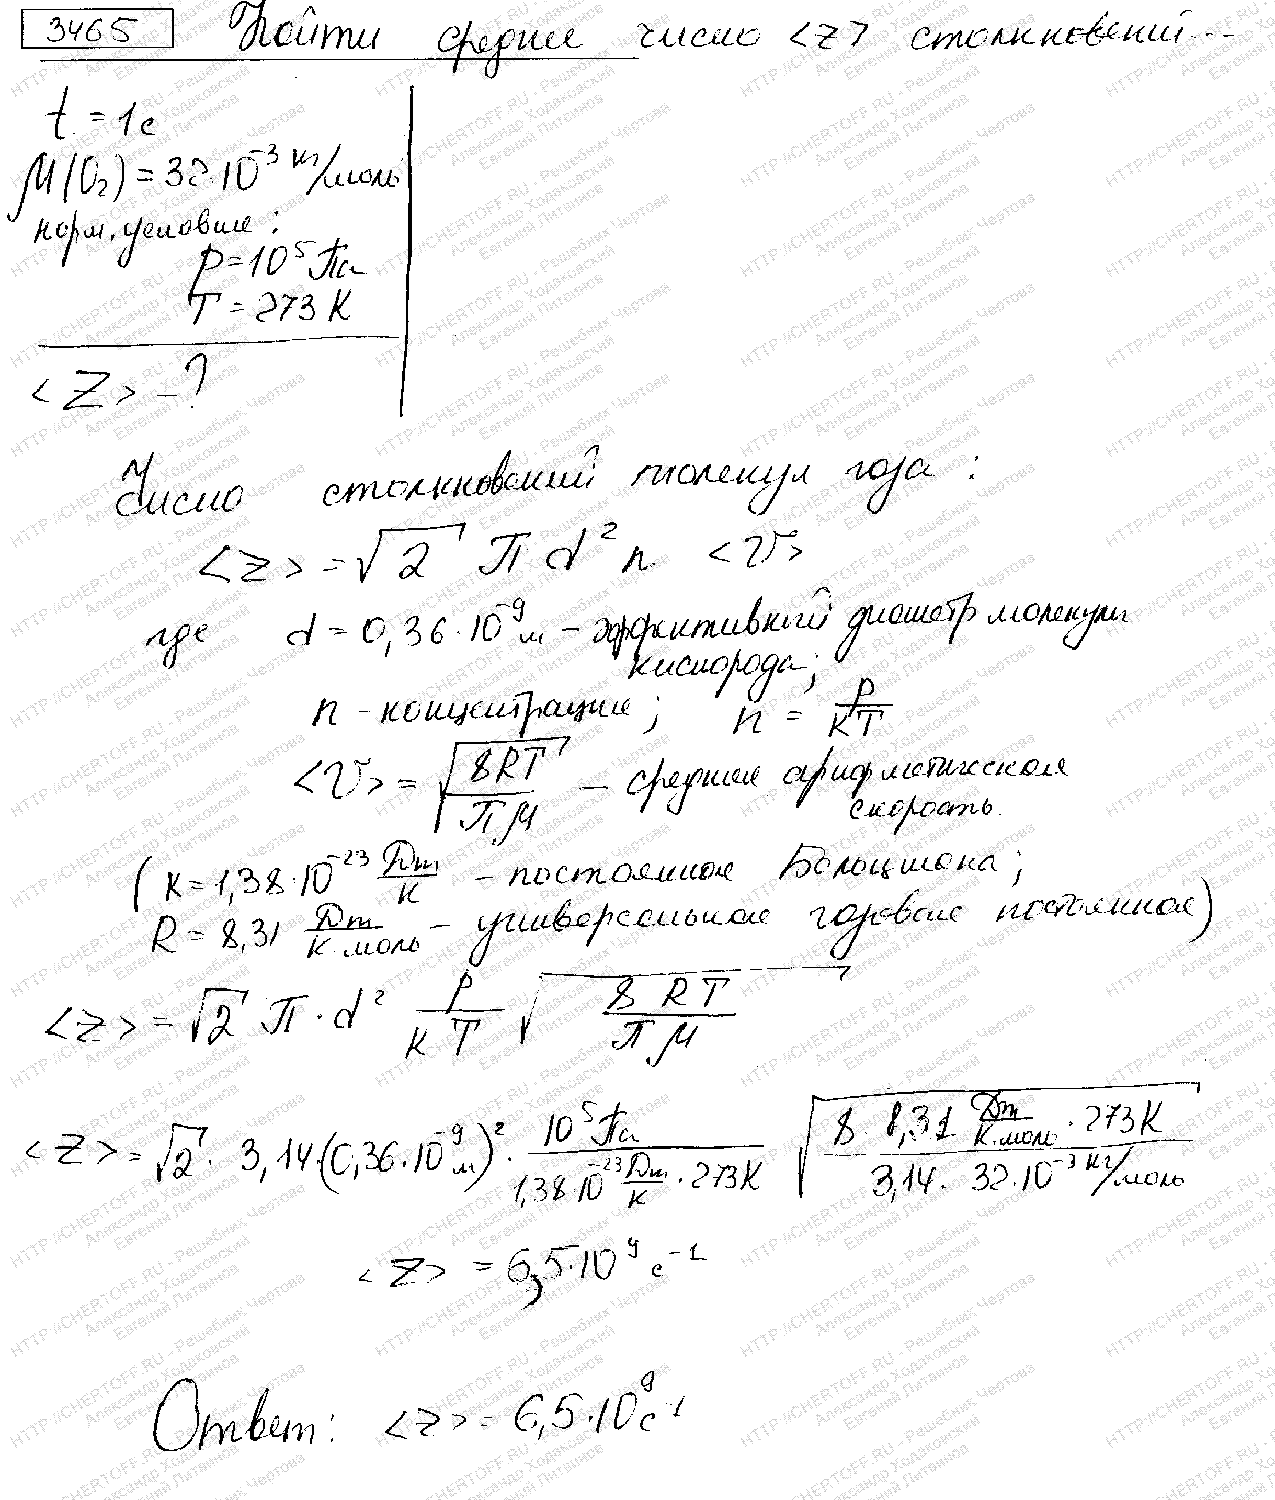 3465 Найти среднее число <z> столкновений...
t = 1 с
M(O₂) = 32·10⁻³ кг/моль
норм. условие:
p = 10⁵ Па
T = 273 К
<z> - ?
Число столкновений молекул газа:
<z> = √2 π d² n <v>
где d = 0,36·10⁻⁹ м - эффективный диаметр молекулы
кислорода;
n - концентрация; n = p/(kT)
<v> = √(8RT/(πM)) - средняя арифметическая
скорость.
(k = 1,38·10⁻²³ Дж/К - постоянная Больцмана;
R = 8,31 Дж/(К·моль) - универсальная газовая постоянная)
<z> = √2 π·d² p/(kT) √(8RT/(πM))
<z> = √2 · 3,14·(0,36·10⁻⁹ м)² · 10⁵ Па/(1,38·10⁻²³ Дж/К · 273К) √(8·8,31 Дж/(К·моль) · 273К/(3,14 · 32·10⁻³ кг/моль))
<z> = 6,5·10⁹ с⁻¹
Ответ: <z> = 6,5·10⁹ с⁻¹
HTTP://CHERTOFF.RU - Решебник Чертова
Александр Ходаковский
Евгений Литвинов